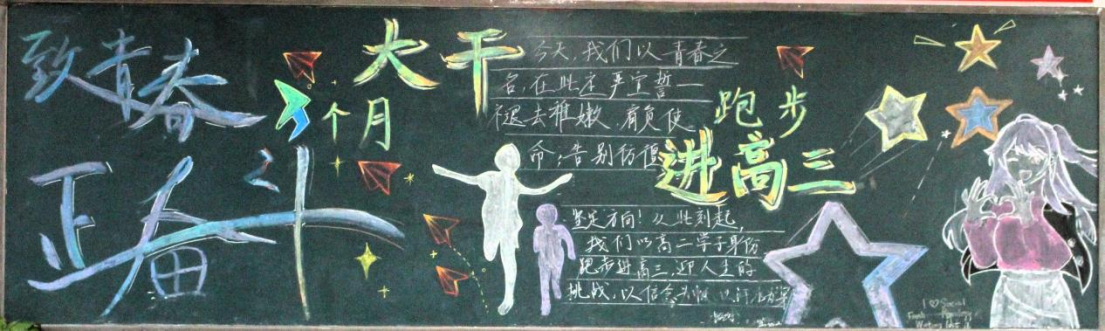 致青春
正奋斗
大干
个月
今天,我们以青春之
名,在此庄严宣誓—
褪去稚嫩,肩负使
命;告别彷徨
跑步
进高三
坚定方向!从此刻起,
我们以高二学子身份
跑步进高三,迎人生的
挑战,以信念为帆
I ♡ Social